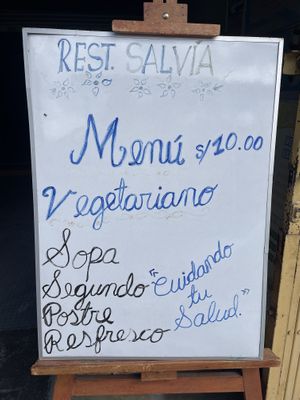 REST. SALVIA
Menú S/10.00
Vegetariano
Sopa
Segundo
Postre
Refresco
"Cuidando
tu
Salud."